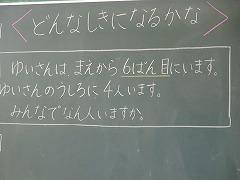 どんなしきになるかな
ゆいさんは、まえから6ばん目にいます。
ゆいさんのうしろに4人います。
みんなでなん人いますか。